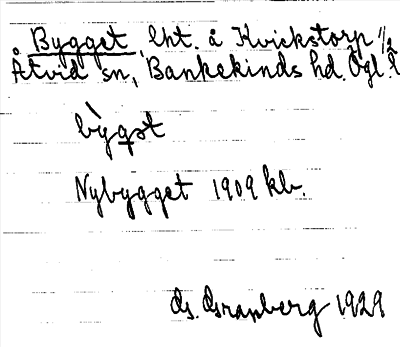 Bygget, lht. å Kvickstorp 1/2
Åtvid sn, Bankekinds hd. Ögl. l
bỳgst
Nybygget 1909 kb.
G. Granberg 1929